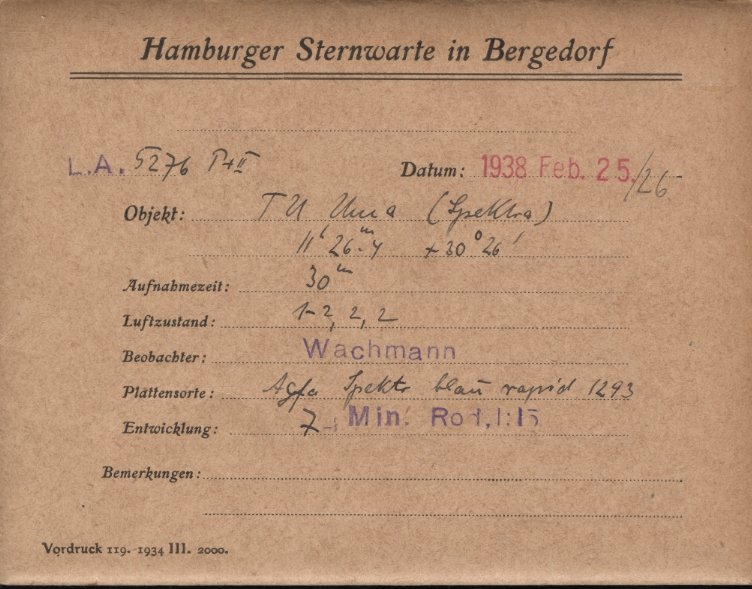 Hamburger Sternwarte in Bergedorf
L.A. 5276 P+II Datum: 1938 Feb. 25./26
Objekt: TU Uma (Spektra)
11h 26m.4 +30° 26'
Aufnahmezeit: 30m
Luftzustand: 1-2, 2, 2
Beobachter: Wachmann
Plattensorte: Agfa Spektr blau rapid 1293
Entwicklung: 7 Min. Rod, 1:15
Bemerkungen:
Vordruck 119. 1934 III. 2000.